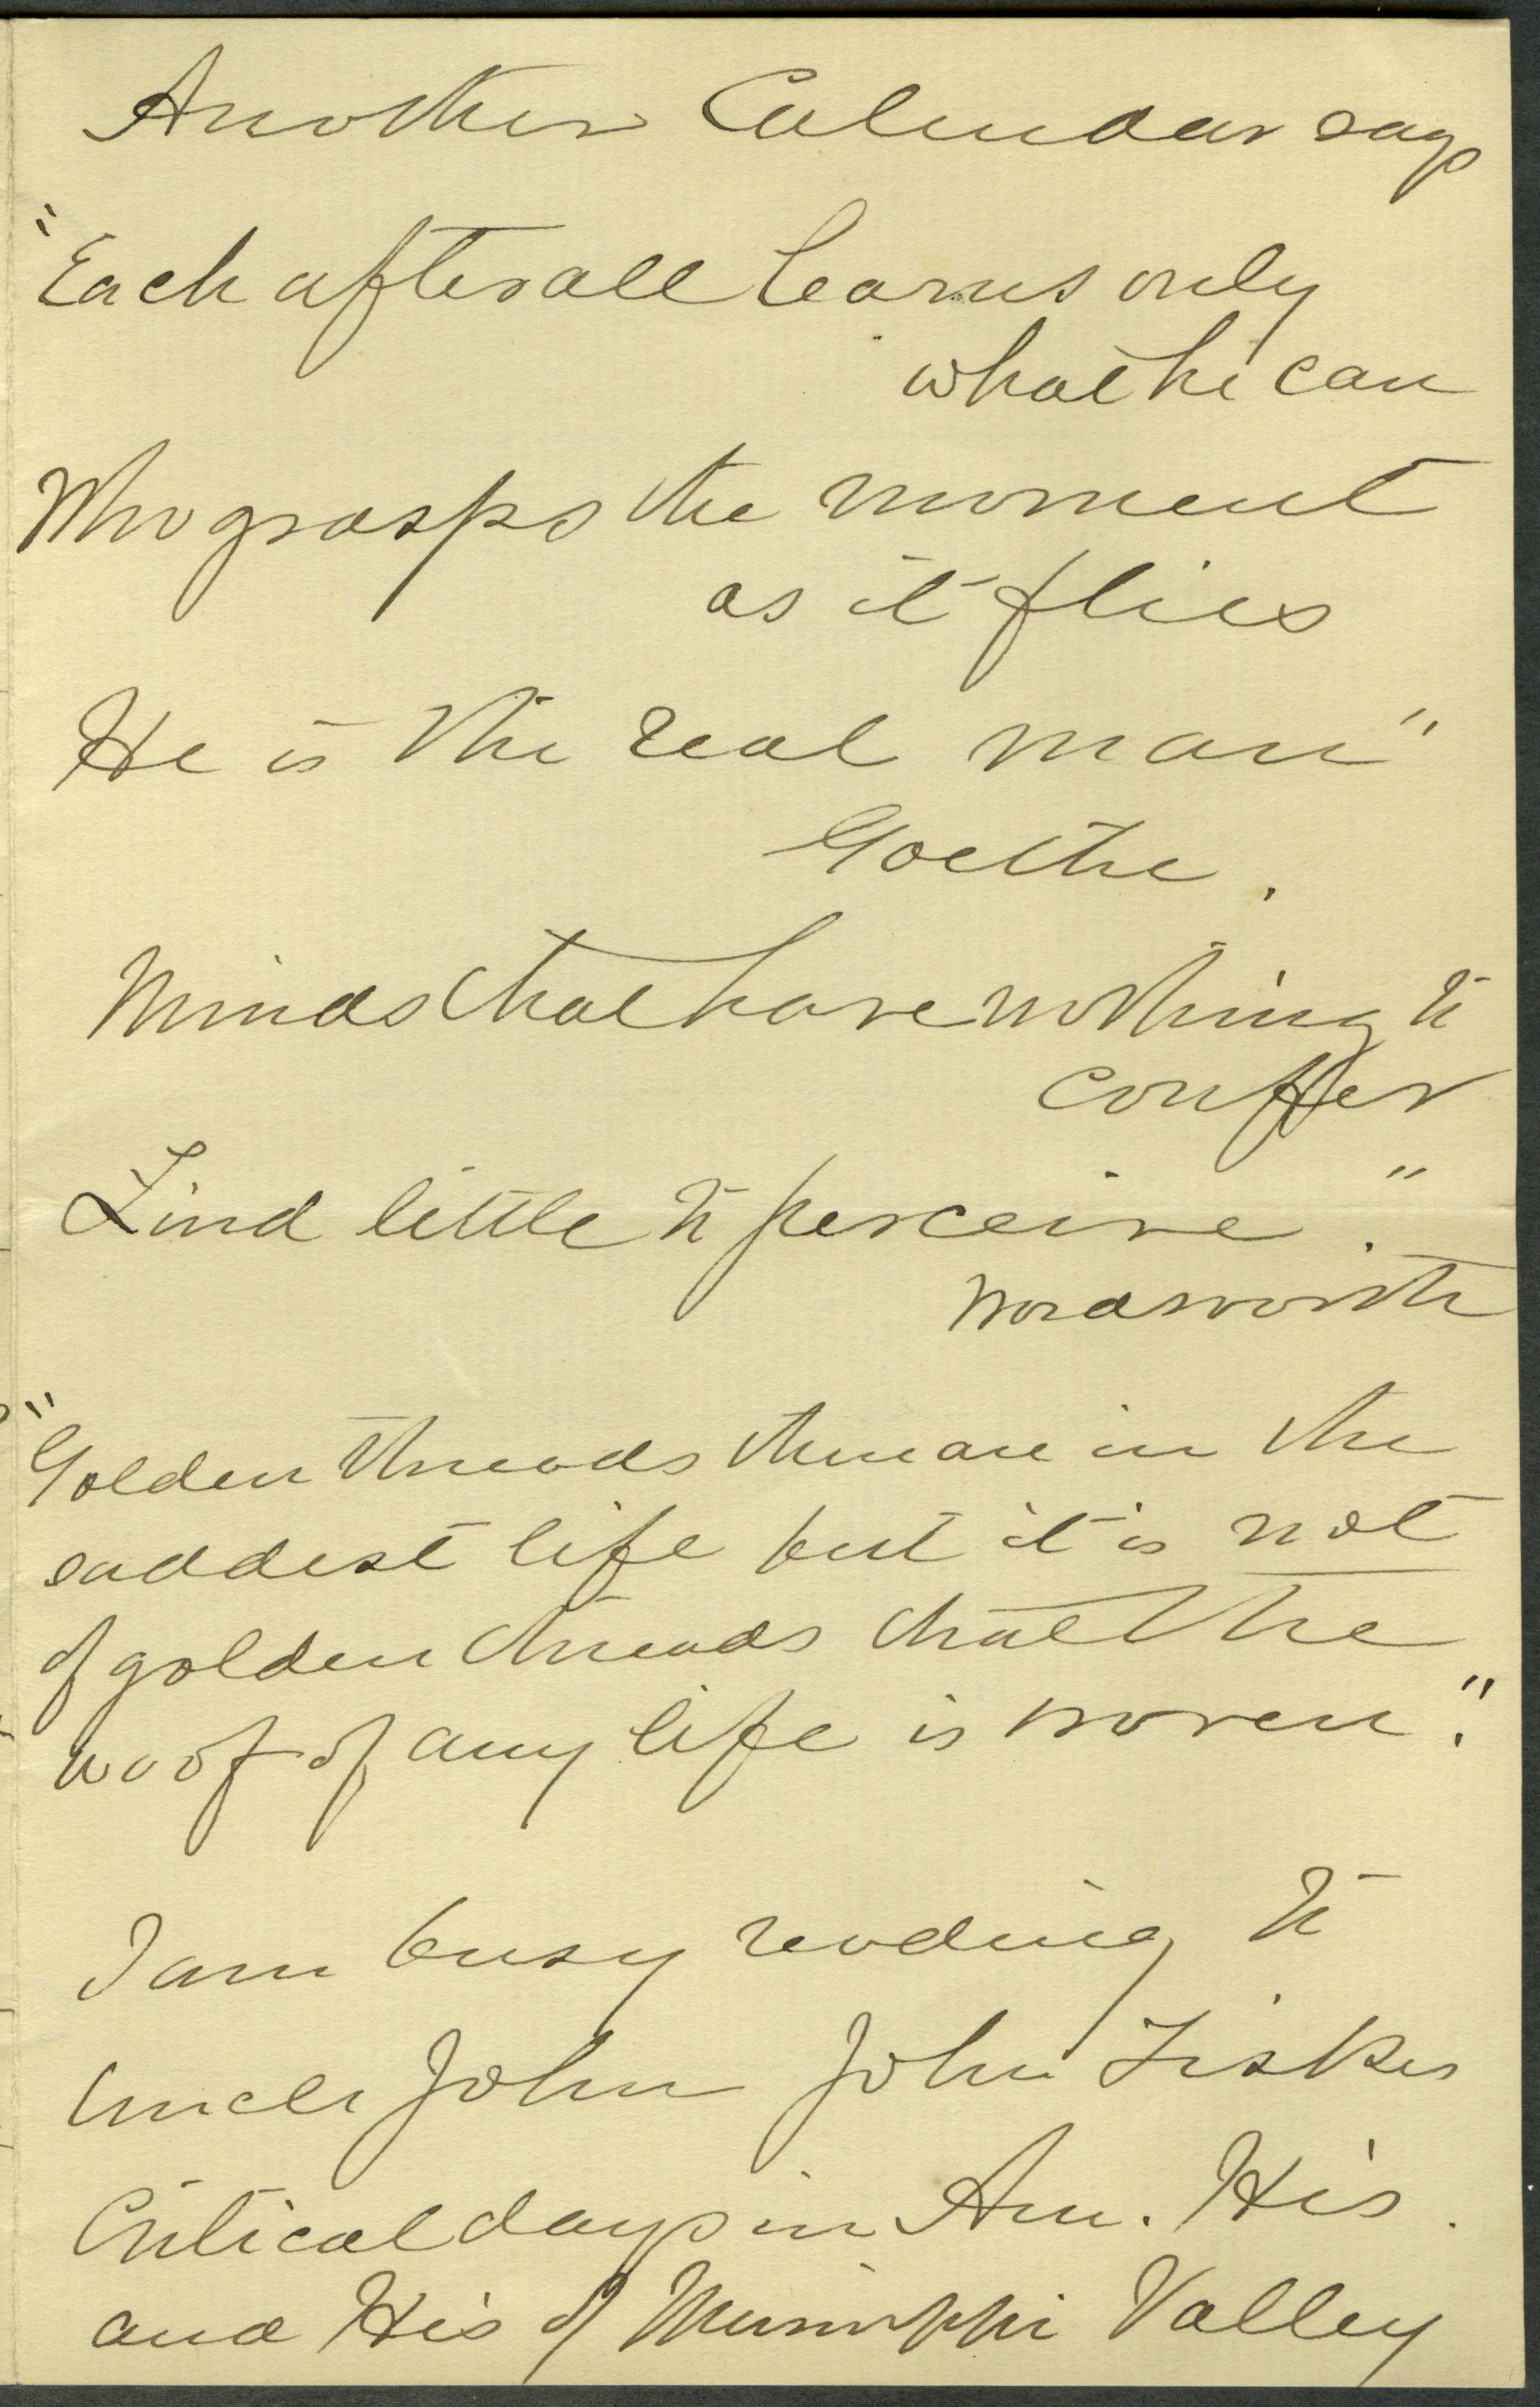 Another Calendar says
"Each after all learns only
what he can
Who grasps the moment
as it flies
He is the real man"
Goethe.
Minds that have nothing to
conffer
Find little to perceive."
Wordsworth
"Golden threads there are in the
saddest life but it is not
of golden threads that the
woof of any life is woven."
I am busy reading to
Uncle John John Fiskes
Critical days in Am. His.
and His of Mississippi Valley